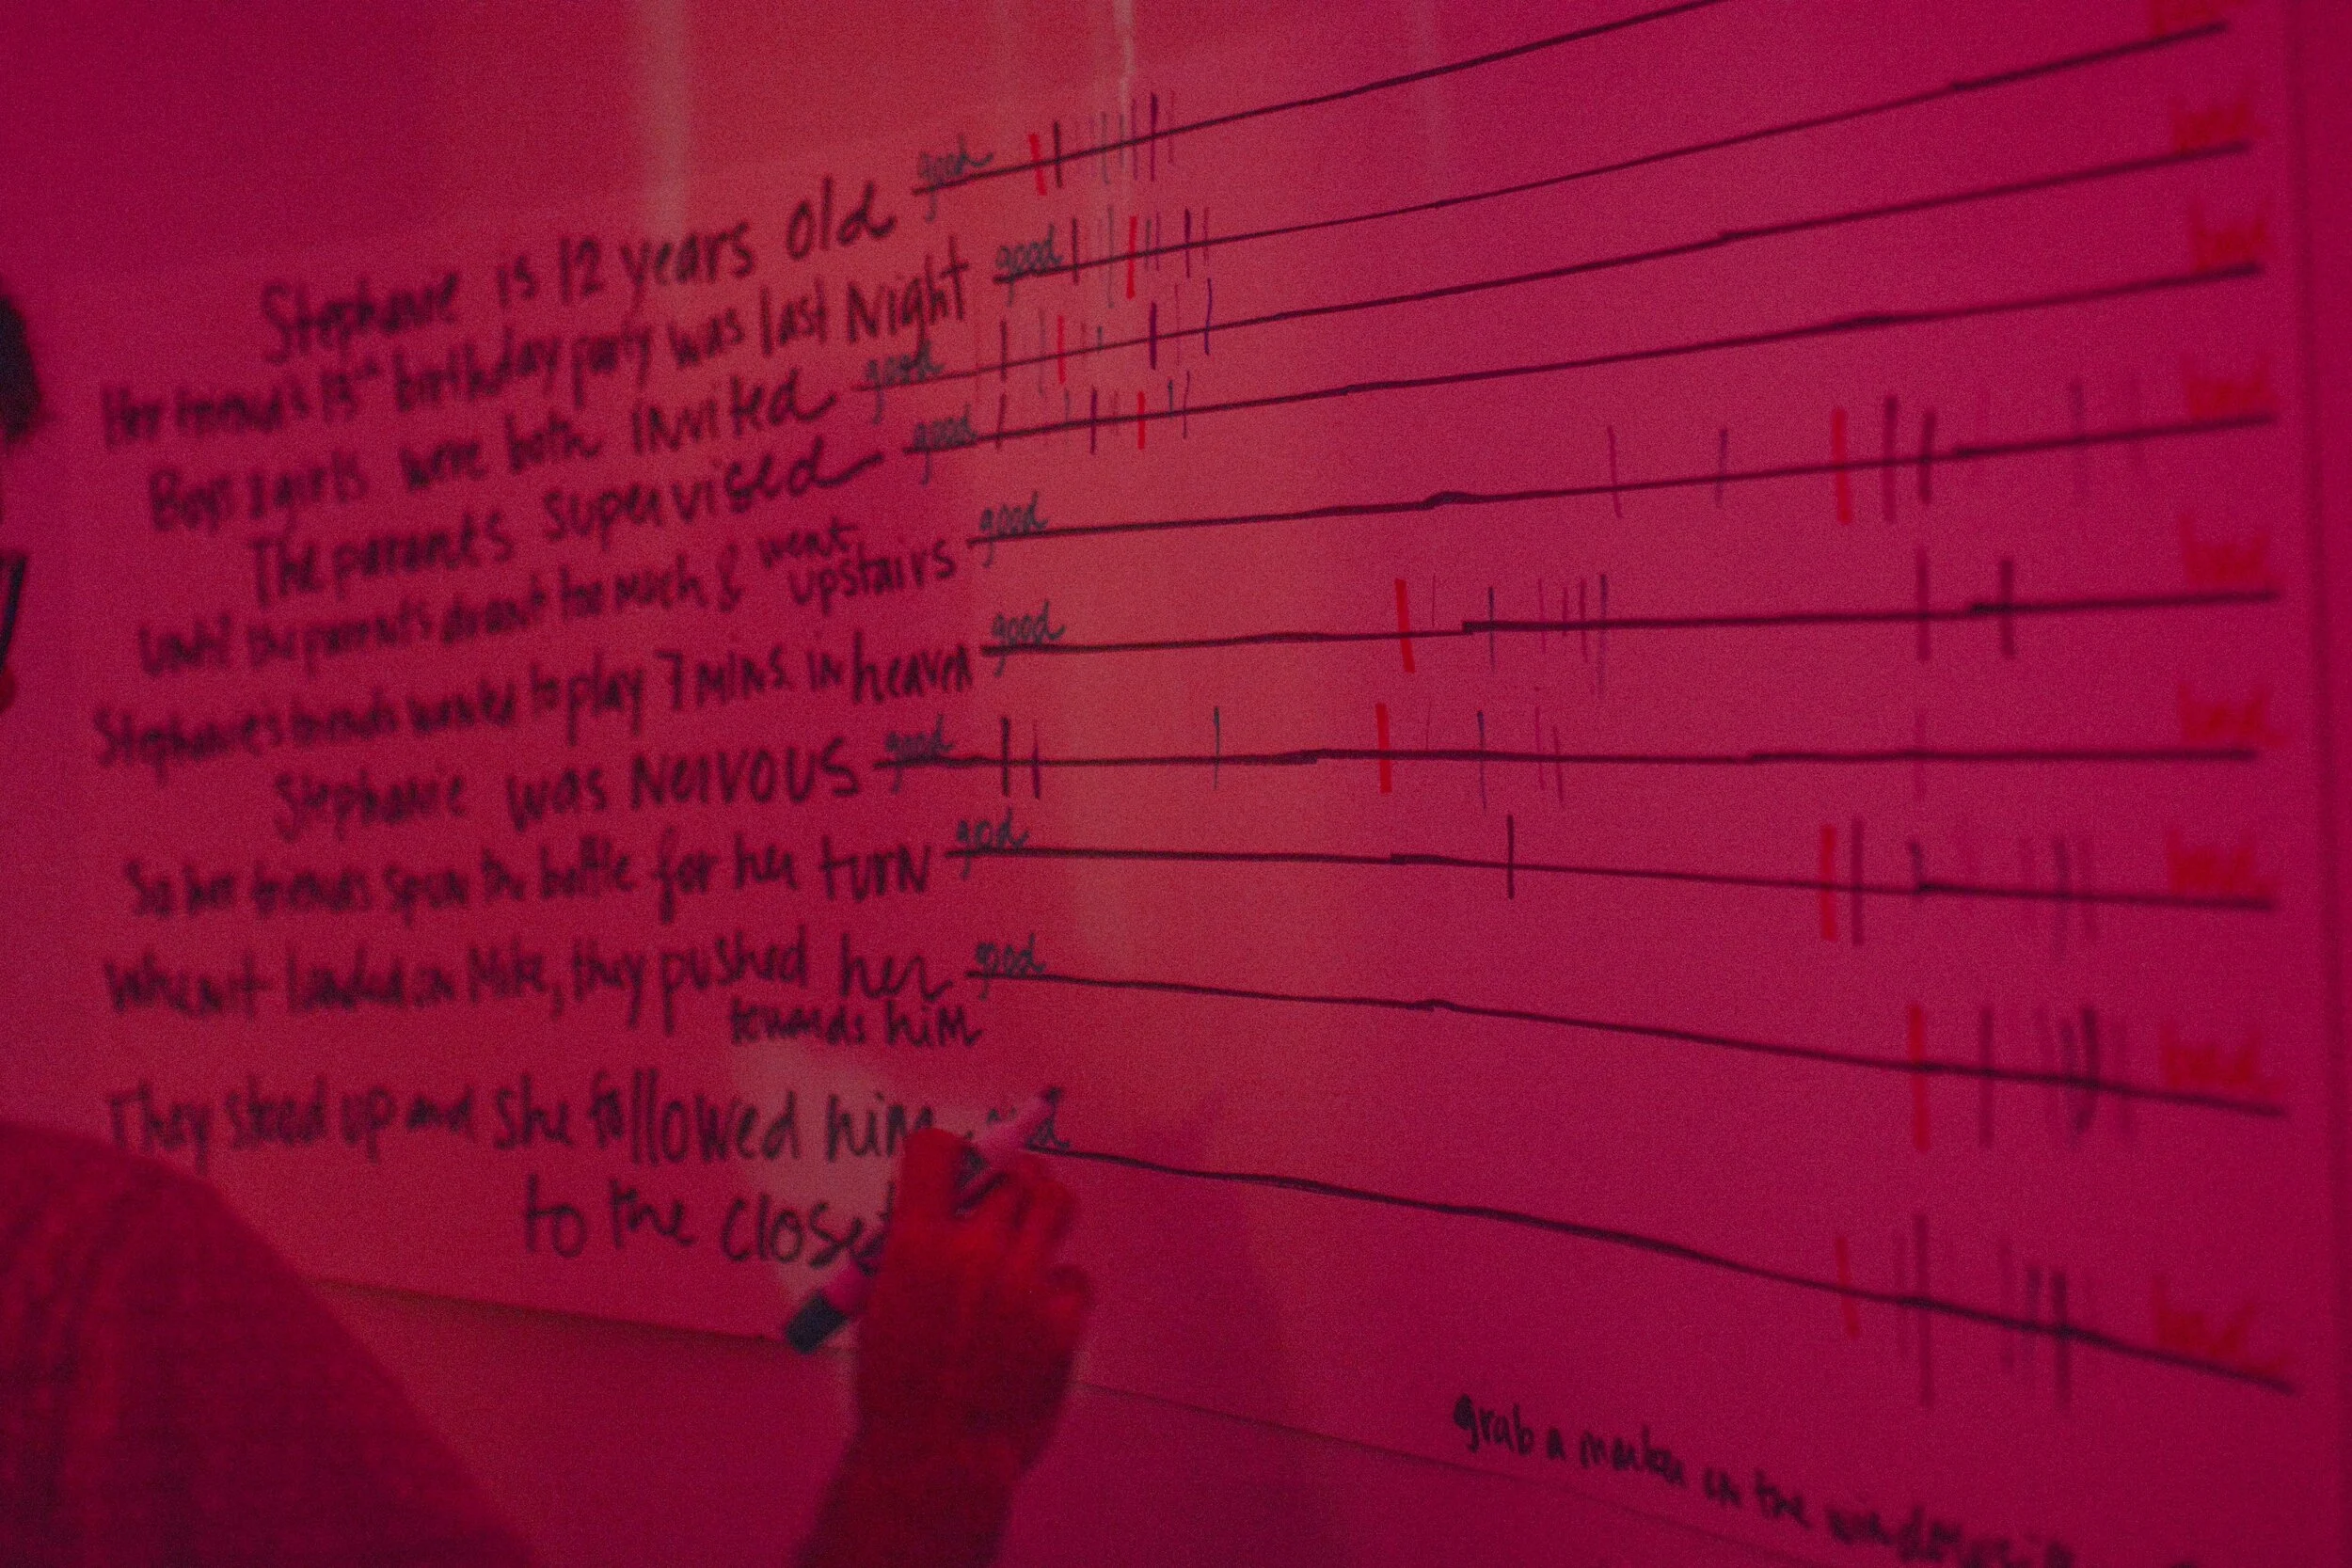 Stephanie is 12 years old good
Her friend's 13th birthday party was last Night good
Boys & girls were both invited good
The parents supervised good
Until the parents drank too much & went
upstairs good
Stephanie's friends wanted to play 7 MINS. in heaven good
Stephanie was Nervous good
So her friends spun the bottle for her turn good
When it landed on Mike, they pushed her good
towards him
They stood up and she followed him
to the closet
bad
bad
bad
bad
bad
bad
bad
bad
bad
grab a marker on the windowsill